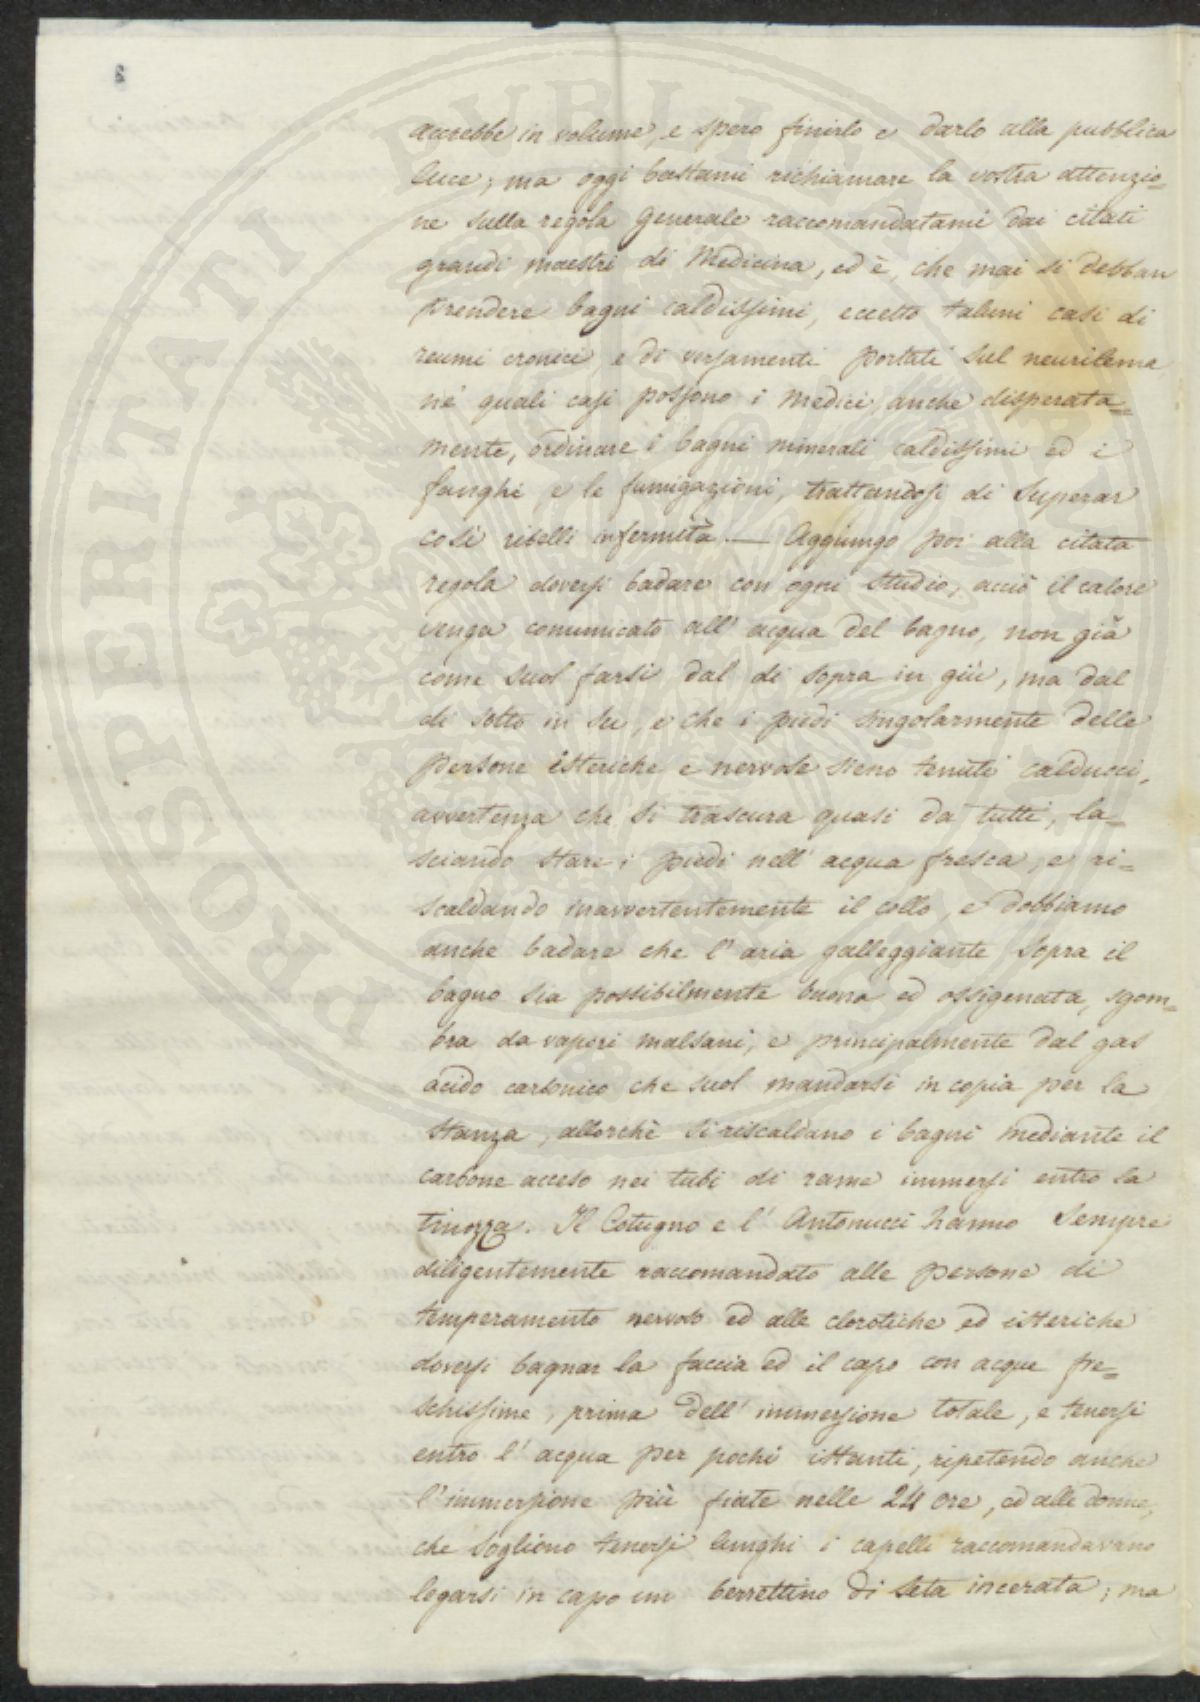 accrebbe in volume, e spero finirlo e darlo alla pubblica
luce; ma oggi bastami richiamare la vostra attenzio=
ne sulla regola generale raccomandatami dai citati
grandi maestri di Medicina, ed è, che mai si debban
prendere bagni caldissimi, eccetto taluni casi di
reumi cronici, e di versamenti portati sul neurilema,
nè quali casi possono i Medici, anche disperata=
mente, ordinare i bagni minerali caldissimi ed i
fanghi e le fumigazioni, trattandosi di superar
così ribelli infermità — Aggiungo poi alla citata
regola doversi badare con ogni studio, acciò il calore
venga comunicato all' acqua del bagno, non già
come suol farsi dal di sopra in giù, ma dal
di sotto in su, e che i piedi singolarmente delle
persone isteriche e nervose sieno tenuti calducci,
avvertenza che si trascura quasi da tutti, la=
sciando stare i piedi nell' acqua fresca, e ri=
scaldando inavvertentemente il collo, e dobbiamo
anche badare che l' aria galleggiante sopra il
bagno sia possibilmente buona ed ossigenata, sgom=
bra da vapori malsani, e principalmente dal gas
acido carbonico che suol mandarsi in copia per la
stanza, allorchè si riscaldano i bagni mediante il
carbone acceso nei tubi di rame immersi entro la
tinozza. Il Cotugno e l' Antonucci hanno sempre
diligentemente raccomandato alle persone di
temperamento nervoso ed alle clorotiche ed isteriche
doversi bagnar la faccia ed il capo con acque fre=
schissime, prima dell' immersione totale, e tenersi
entro l' acqua per pochi istanti, ripetendo anche
l' immersione più fiate nelle 24 ore, ed alle donne,
che sogliono tenersi lunghi i capelli raccomandavano
legarsi in capo un berrettino di seta incerata; ma
PROSPERITATI PUBLICAE